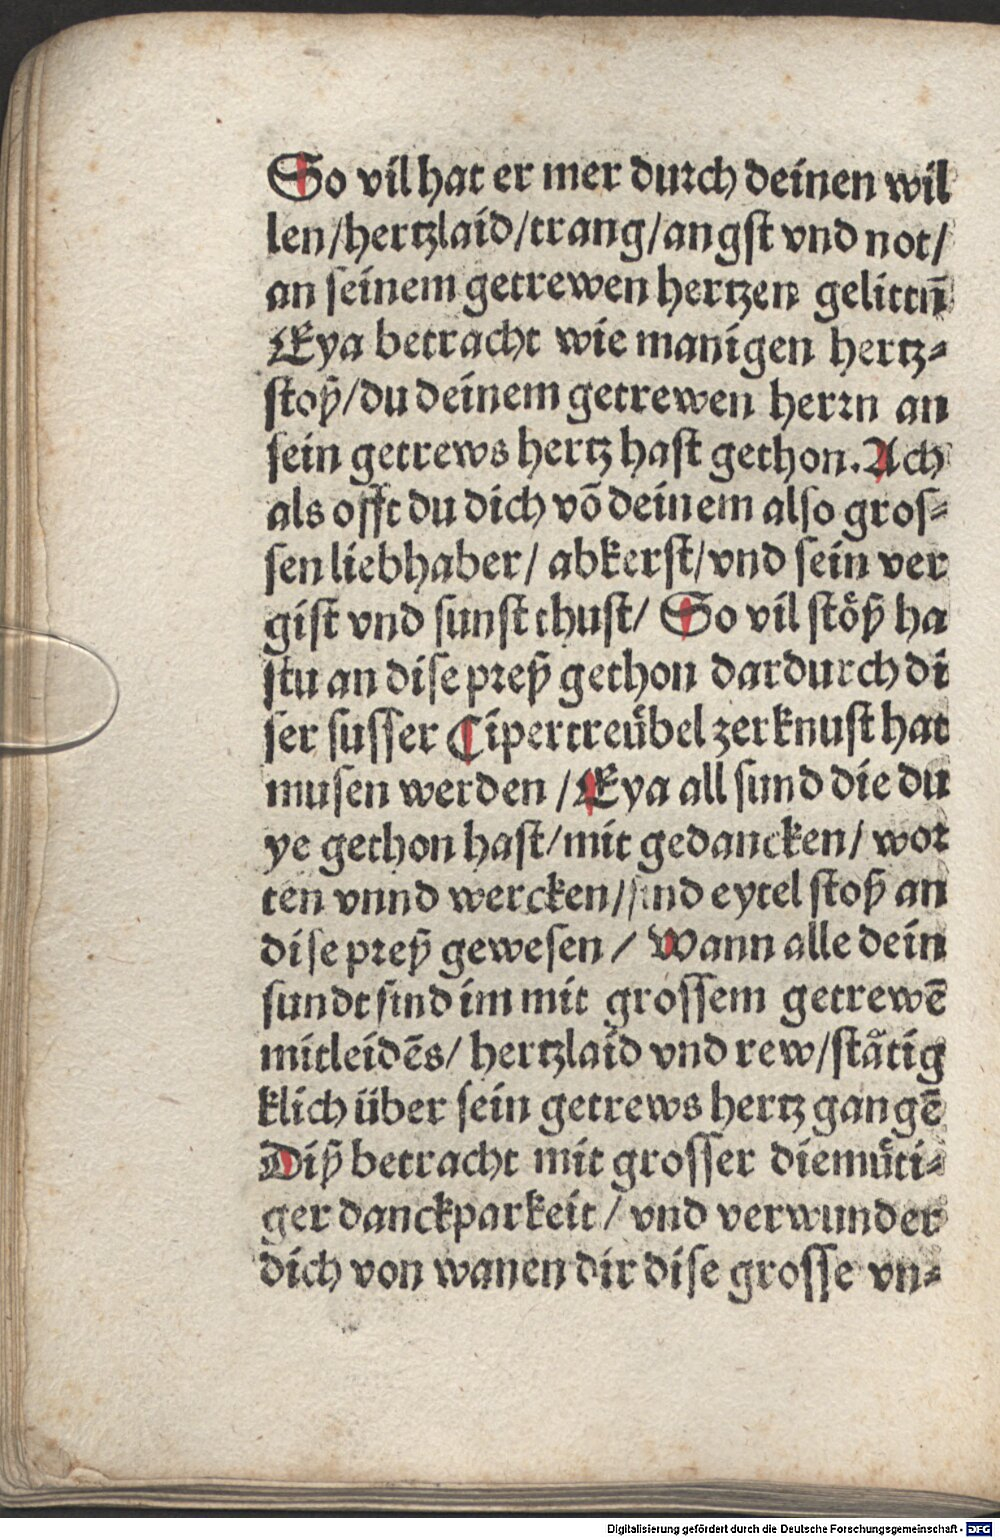 So vil hat er mer durch deinen wil
len/hertzlaid/trang/angst vnd not/
an seinem getrewen hertzen gelittn̄
Eya betracht wie manigen hertz-
stoß/du deinem getrewen herrn an
sein getrews hertz hast gethon. Ach
als offt du dich võ deinem also gros-
sen liebhaber/ abkerst/vnd sein ver
gist vnd sunst thust/ So vil stöß ha
stu an dise preß gethon dardurch di
ser susser Cipertreübel zerknust hat
musen werden /Eya all sund die du
ye gethon hast/mit gedancken/ wor
ten vnnd wercken/sind eytel stoß an
dise preß gewesen / Wann alle dein
sundt sind im mit grossem getrewē
mitleidēs/ hertzlaid vnd rew/stätig
klich über sein getrews hertz gangē
Diß betracht mit grosser diemüti-
ger danckparkeit / vnd verwunder
dich von wanen dir dise grosse vn-
Digitalisierung gefördert durch die Deutsche Forschungsgemeinschaft - DFG